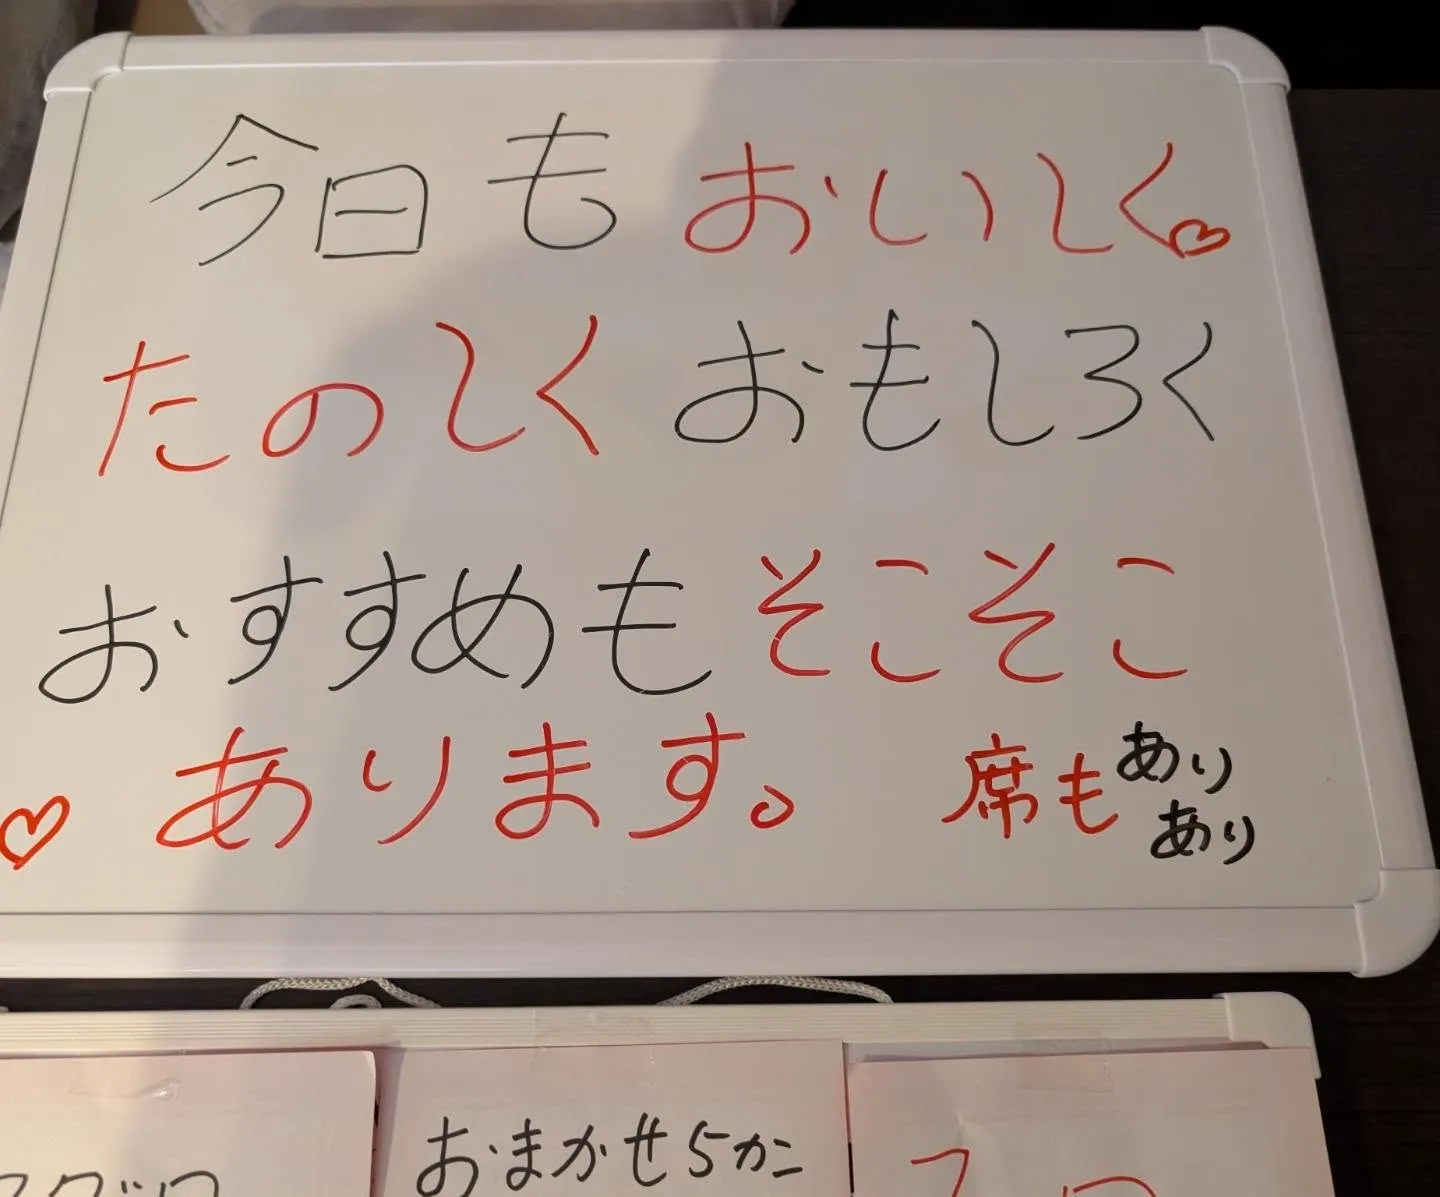 今日もおいしく♡
たのしくおもしろく
おすすめもそこそこ
♡あります。 席もありあり
おまかせ5カニ